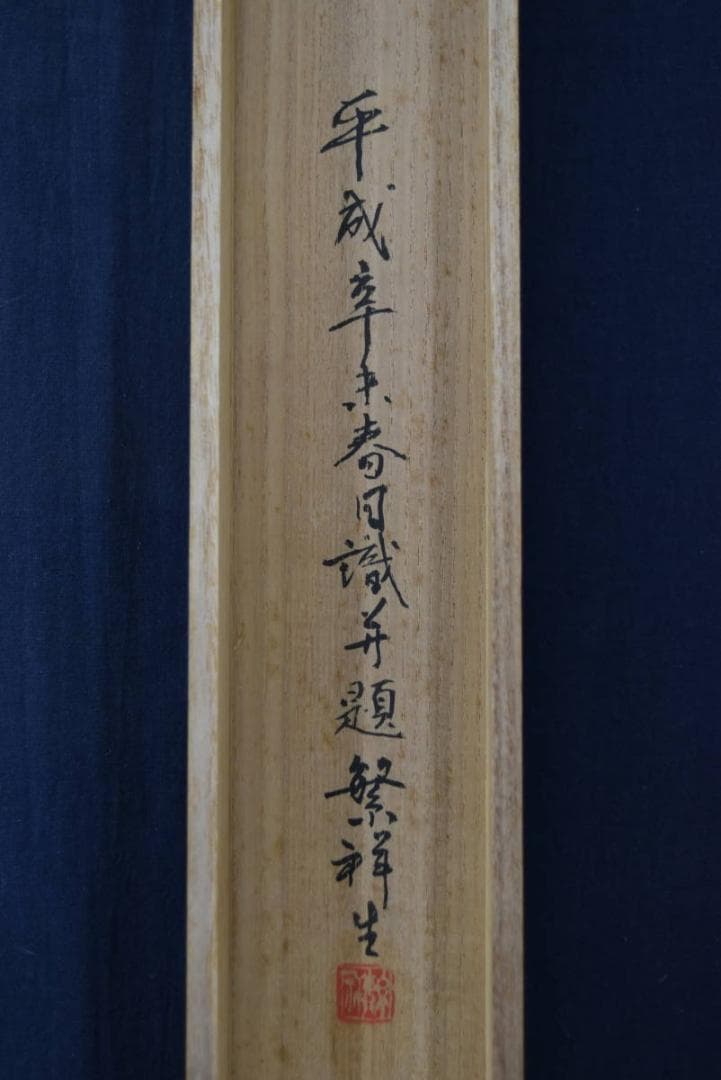 平成辛未春日識并題繁祥生